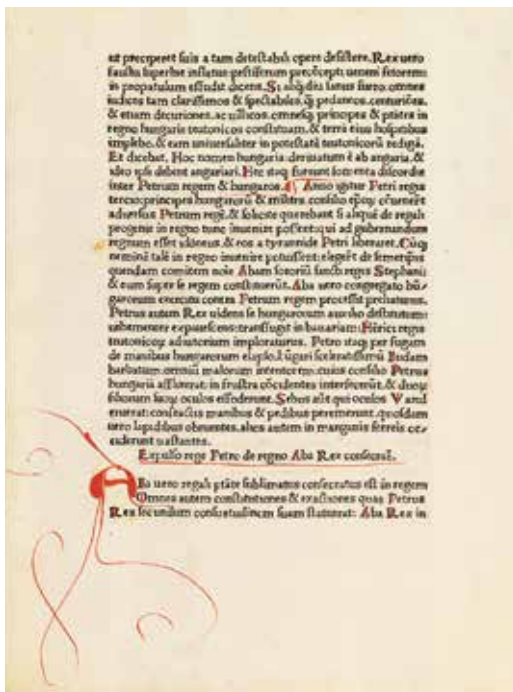 ut preciperet suis a tam detestabili opere desistere. Rex uero
fastu superbie inflatus pestiferum precōcepti ueneni fetorem
in propatulum effudit dicens. Si aliq̄diu sanus fuero. omnes
iudices tam clarissimos & spectabiles. q̄ pedaneos. centuriōes.
& etiam decuriones. ac uillicos. omnesq; principes & ptātes in
regno hungarie teutonicos constituam. & terrā eius hospitibus
implebo. & eam uniuersaliter in potestatē teutonicorū redigā.
Et dicebat. Hoc nomen hungaria deriuatum ē ab angaria. &
ideo ipsi debent angariari. Hec itaq; fuerunt fomenta discordie
inter Petrum regem & hungaros. Anno igitur Petri regis
tercio: principes hungarorū & milites. consilio ep̄oꝝ cōuenerūt
aduersus Petrum regē. & solicite querebant si aliquē de regali
progenie in regno tunc inuenire possent: qui ad gubernandum
regnum esset idoneus & eos a tyrannide Petri liberaret. Cūq;
neminē talē in regno inuenire potuissent: elegerūt de semetipsis
quendam comitem noīe Abam sororiū sancti regis Stephani
& eum super se regem constituerūt. Aba uero congregato hū⸗
garorum exercitu contra Petrum regem processit preliaturus.
Petrus autem Rex uidens se hungarorum auxilio destitutum:
uehementer expauescens: transfugit in bauariam: Hērici regis
teutonicoꝝ adiutorium imploraturus. Petro itaq; per fugam
de manibus hungarorum elapso. hūgari sceleratissimū Budam
barbatum. omniū malorum intentorem: cuius consilio Petrus
hungariā afflixerat: in frustra cōcidentes interfecerūt. & duoꝝ
filiorum suoꝝ oculos effoderunt. Sebus aūt qui oculos Vazul
eruerat: confractis manibus & pedibus peremerunt. quosdam
uero lapidibus obruentes. alios autem in manganis ferreis oc⸗
ciderunt uastantes.
Expulso rege Petro de regno Aba Rex consecratᷣ.
ABa uero regali ptāte sublimatus consecratus est in regem
Omnes autem constitutiones & exactiones quas Petrus
Rex secundum consuetudinem suam statuerat: Aba Rex in